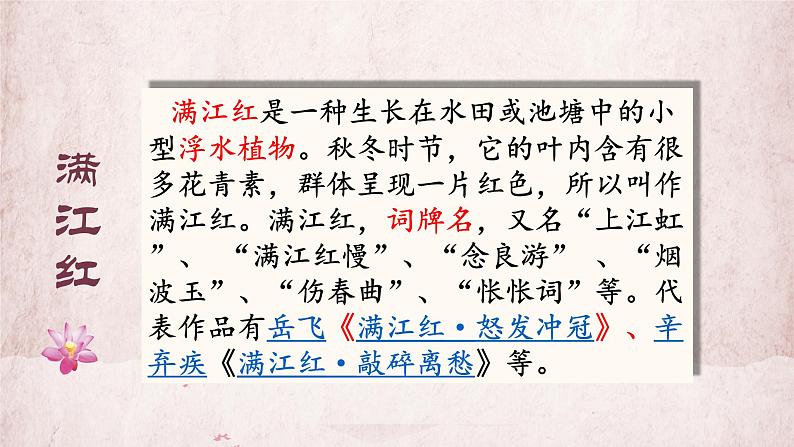 满江红
满江红是一种生长在水田或池塘中的小
型浮水植物。秋冬时节，它的叶内含有很
多花青素，群体呈现一片红色，所以叫作
满江红。满江红，词牌名，又名“上江虹
”、 “满江红慢”、“念良游” 、“烟
波玉”、“伤春曲”、“怅怅词”等。代
表作品有岳飞《满江红·怒发冲冠》、辛
弃疾《满江红·敲碎离愁》等。